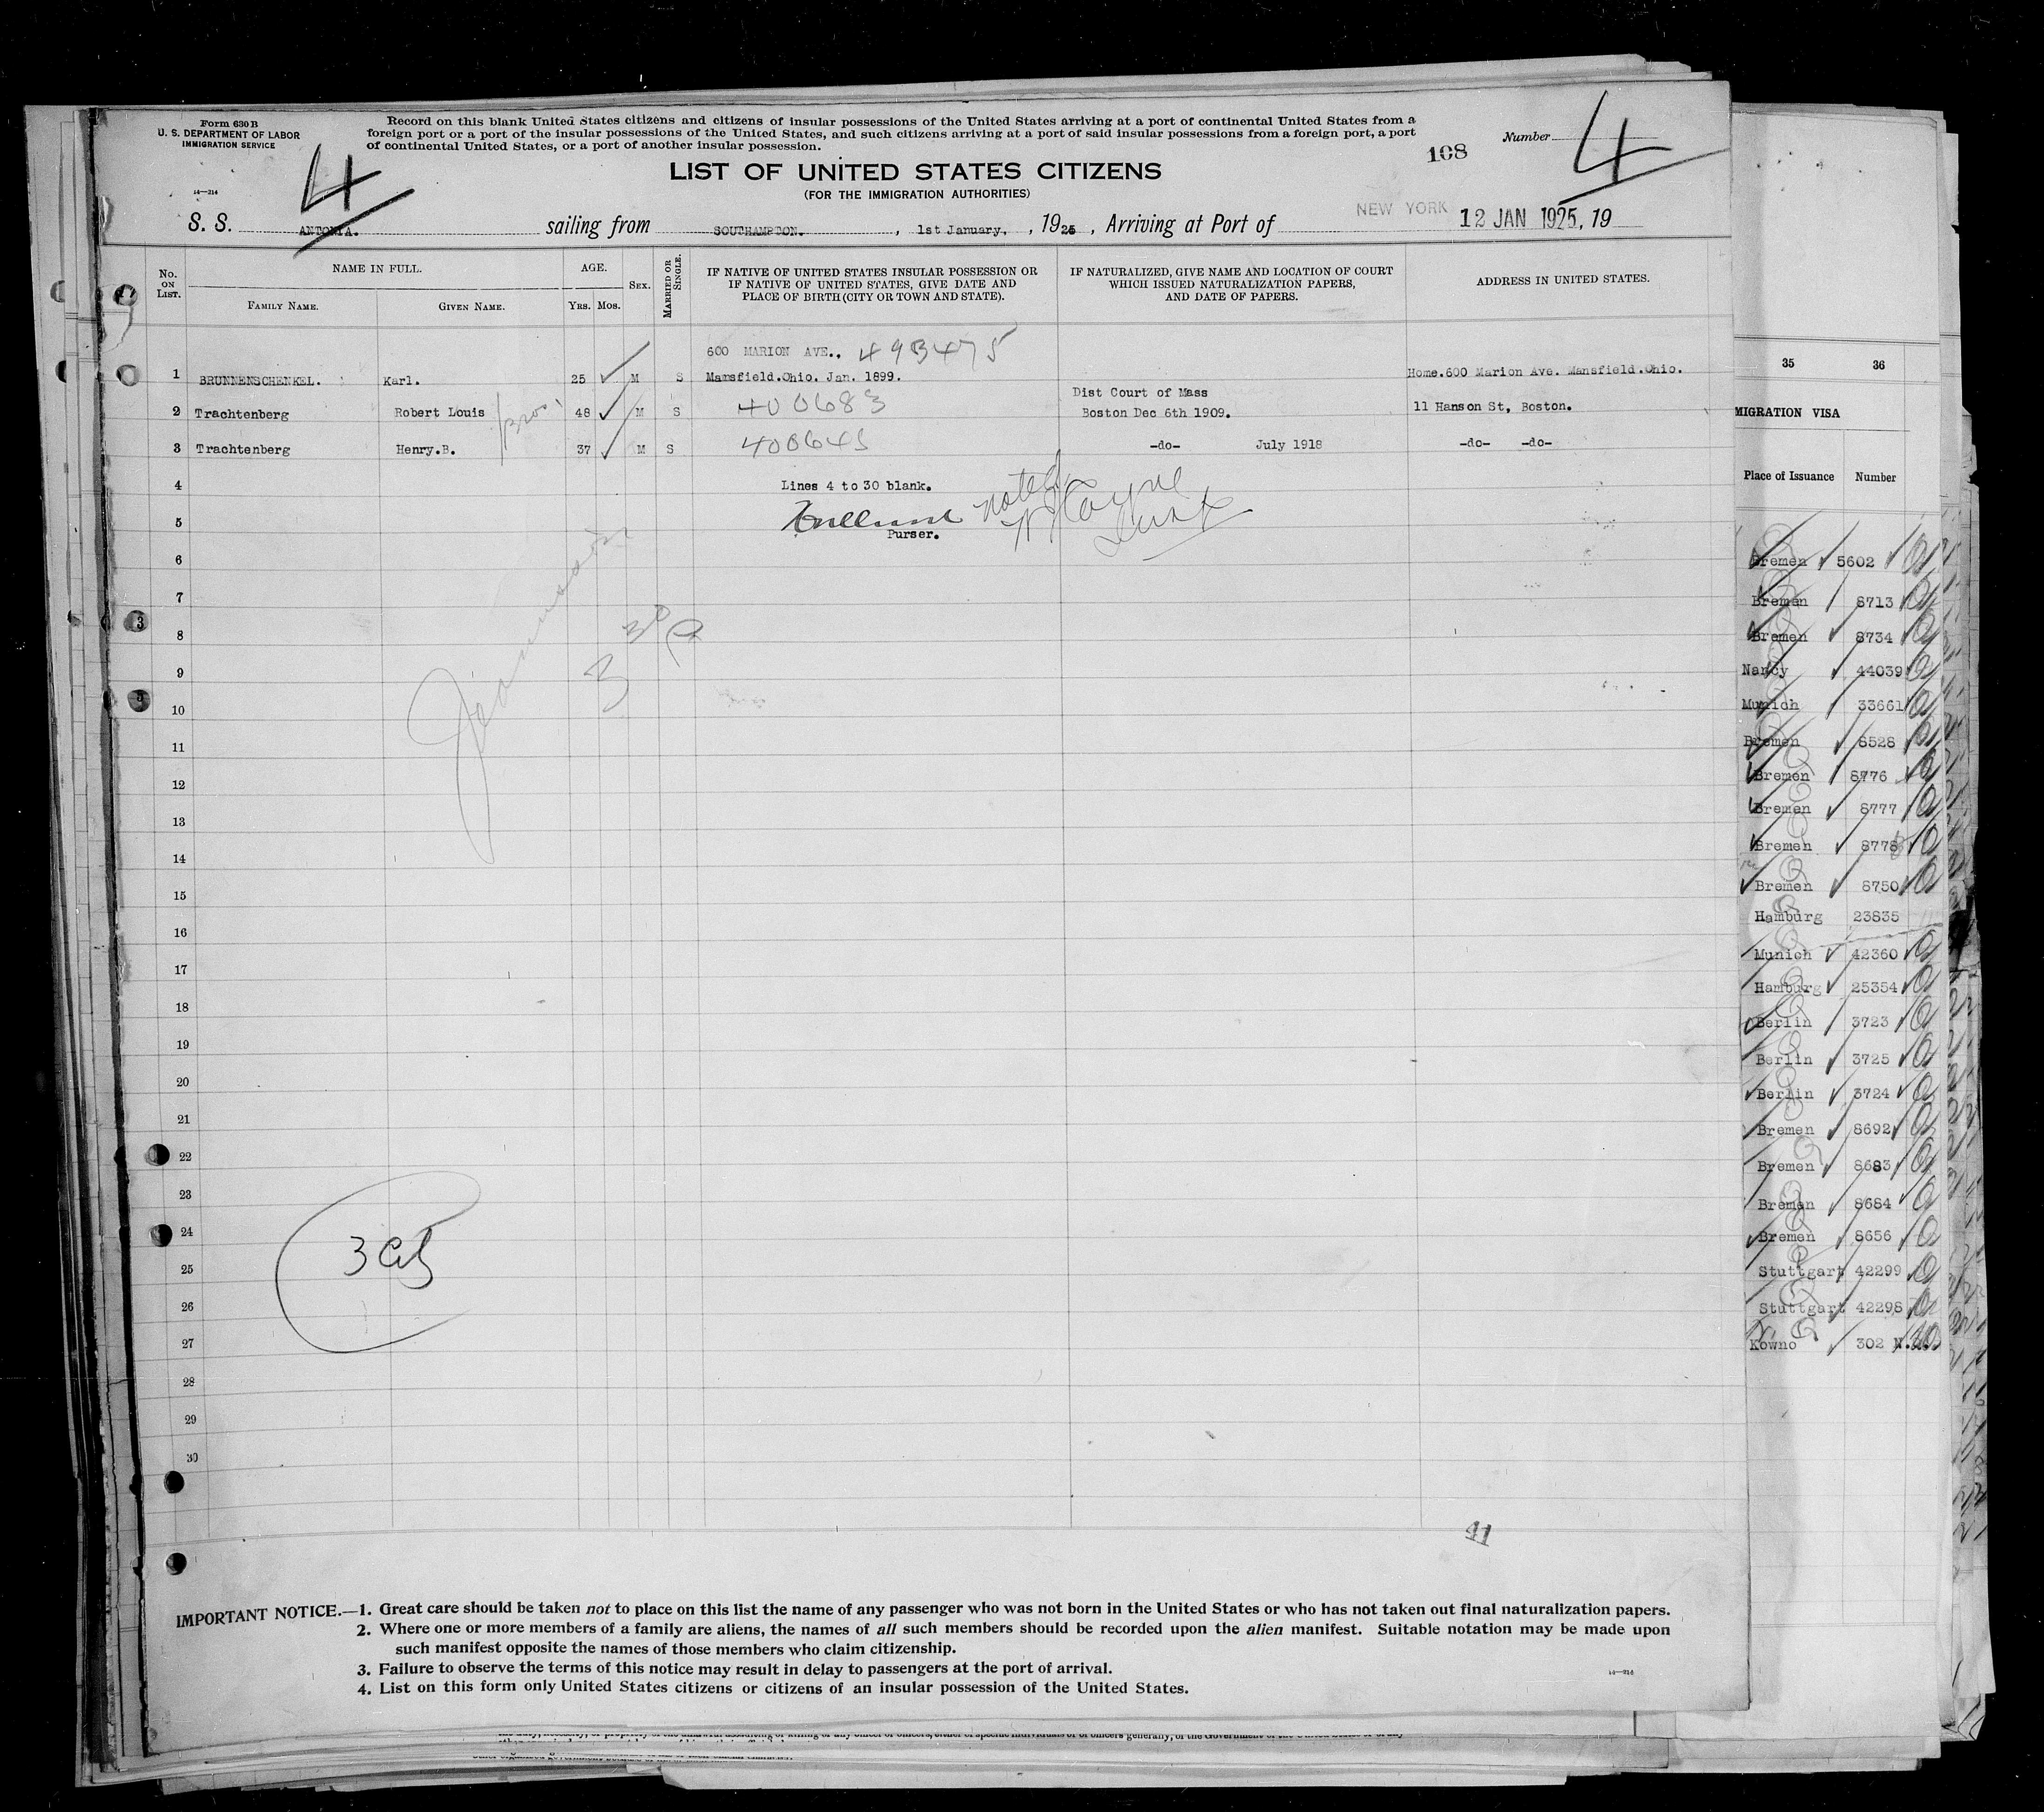 Form 630 B
U. S. DEPARTMENT OF LABOR
IMMIGRATION SERVICE
14—214
Record on this blank United States citizens and citizens of insular possessions of the United States arriving at a port of continental United States from a
foreign port or a port of the insular possessions of the United States, and such citizens arriving at a port of said insular possessions from a foreign port, a port
of continental United States, or a port of another insular possession.
Number 4
108
4
LIST OF UNITED STATES CITIZENS
(FOR THE IMMIGRATION AUTHORITIES)
S. S. ANTONIA. sailing from SOUTHAMPTON. , 1st January, , 1925 , Arriving at Port of NEW YORK 12 JAN 1925, 19
No. ON LIST.
NAME IN FULL.
FAMILY NAME.
GIVEN NAME.
AGE.
YRS. MOS.
SEX.
MARRIED OR SINGLE.
IF NATIVE OF UNITED STATES INSULAR POSSESSION OR
IF NATIVE OF UNITED STATES, GIVE DATE AND
PLACE OF BIRTH (CITY OR TOWN AND STATE).
IF NATURALIZED, GIVE NAME AND LOCATION OF COURT
WHICH ISSUED NATURALIZATION PAPERS,
AND DATE OF PAPERS.
ADDRESS IN UNITED STATES.
600 MARION AVE., 493475
1 BRUNNENSCHENKEL. Karl. 25 M S Mansfield.Ohio. Jan. 1899. Home.600 Marion Ave. Mansfield.Ohio.
Dist Court of Mass
2 Trachtenberg Robert Louis Bros 48 M S 400683 Boston Dec 6th 1909. 11 Hanson St, Boston.
3 Trachtenberg Henry.B. 37 M S 400645 -do- July 1918 -do- -do-
4 Lines 4 to 30 blank.
noted
5
Purser.
6
7
8
9
10
11
12
13
14
15
16
17
18
19
20
21
22
23
24
25
26
27
28
29
30
3
41
IMPORTANT NOTICE.—1. Great care should be taken not to place on this list the name of any passenger who was not born in the United States or who has not taken out final naturalization papers.
2. Where one or more members of a family are aliens, the names of all such members should be recorded upon the alien manifest. Suitable notation may be made upon
such manifest opposite the names of those members who claim citizenship.
3. Failure to observe the terms of this notice may result in delay to passengers at the port of arrival.
4. List on this form only United States citizens or citizens of an insular possession of the United States.
14—214
35 36
MIGRATION VISA
Place of Issuance Number
Bremen 5602
Bremen 8713
Bremen 8734
Nancy 44039
Munich 33661
Bremen 8528
Bremen 8776
Bremen 8777
Bremen 8778
Bremen 8750
Hamburg 23835
Munich 42360
Hamburg 25354
Berlin 3723
Berlin 3725
Berlin 3724
Bremen 8692
Bremen 8683
Bremen 8684
Bremen 8656
Stuttgart 42299
Stuttgart 42298
Kowno 302